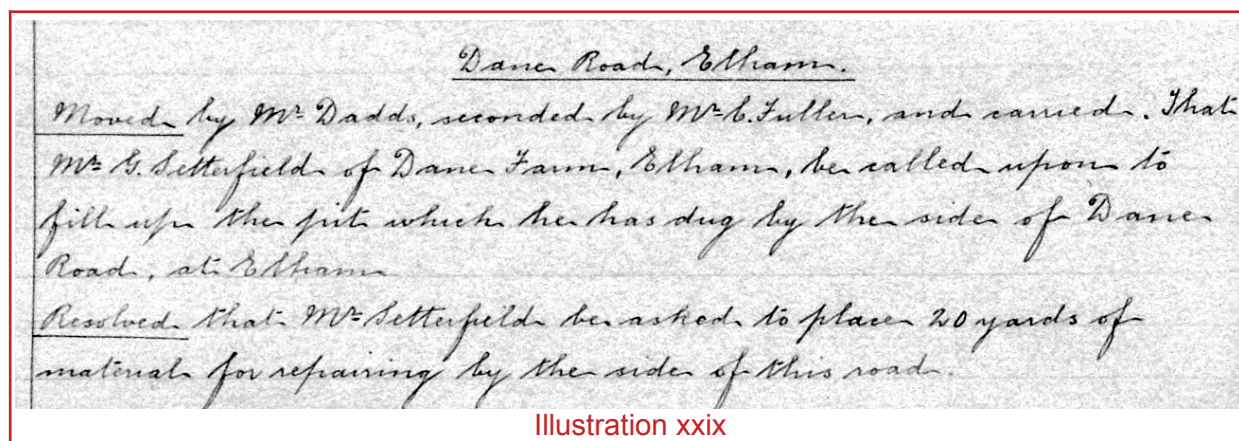 Dane Road, Elham.
Moved by Mr Dadds, seconded by Mr C. Fuller, and carried. That
Mr G. Setterfield of Dane Farm, Elham, be called upon to
fill up the pit which he has dug by the side of Dane
Road, at Elham
Resolved that Mr Setterfield be asked to place 20 yards of
material for repairing by the side of this road.
Illustration xxix